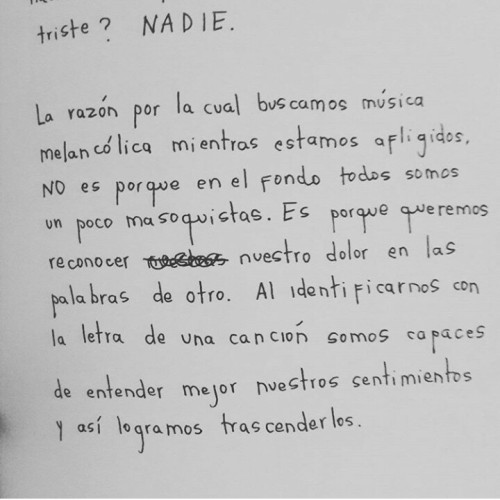 triste? NADIE.
La razón por la cual buscamos música
melancólica mientras estamos afligidos,
NO es porque en el fondo todos somos
un poco masoquistas. Es porque queremos
reconocer nuestro dolor en las
palabras de otro. Al identificarnos con
la letra de una canción somos capaces
de entender mejor nuestros sentimientos
y así logramos trascenderlos.